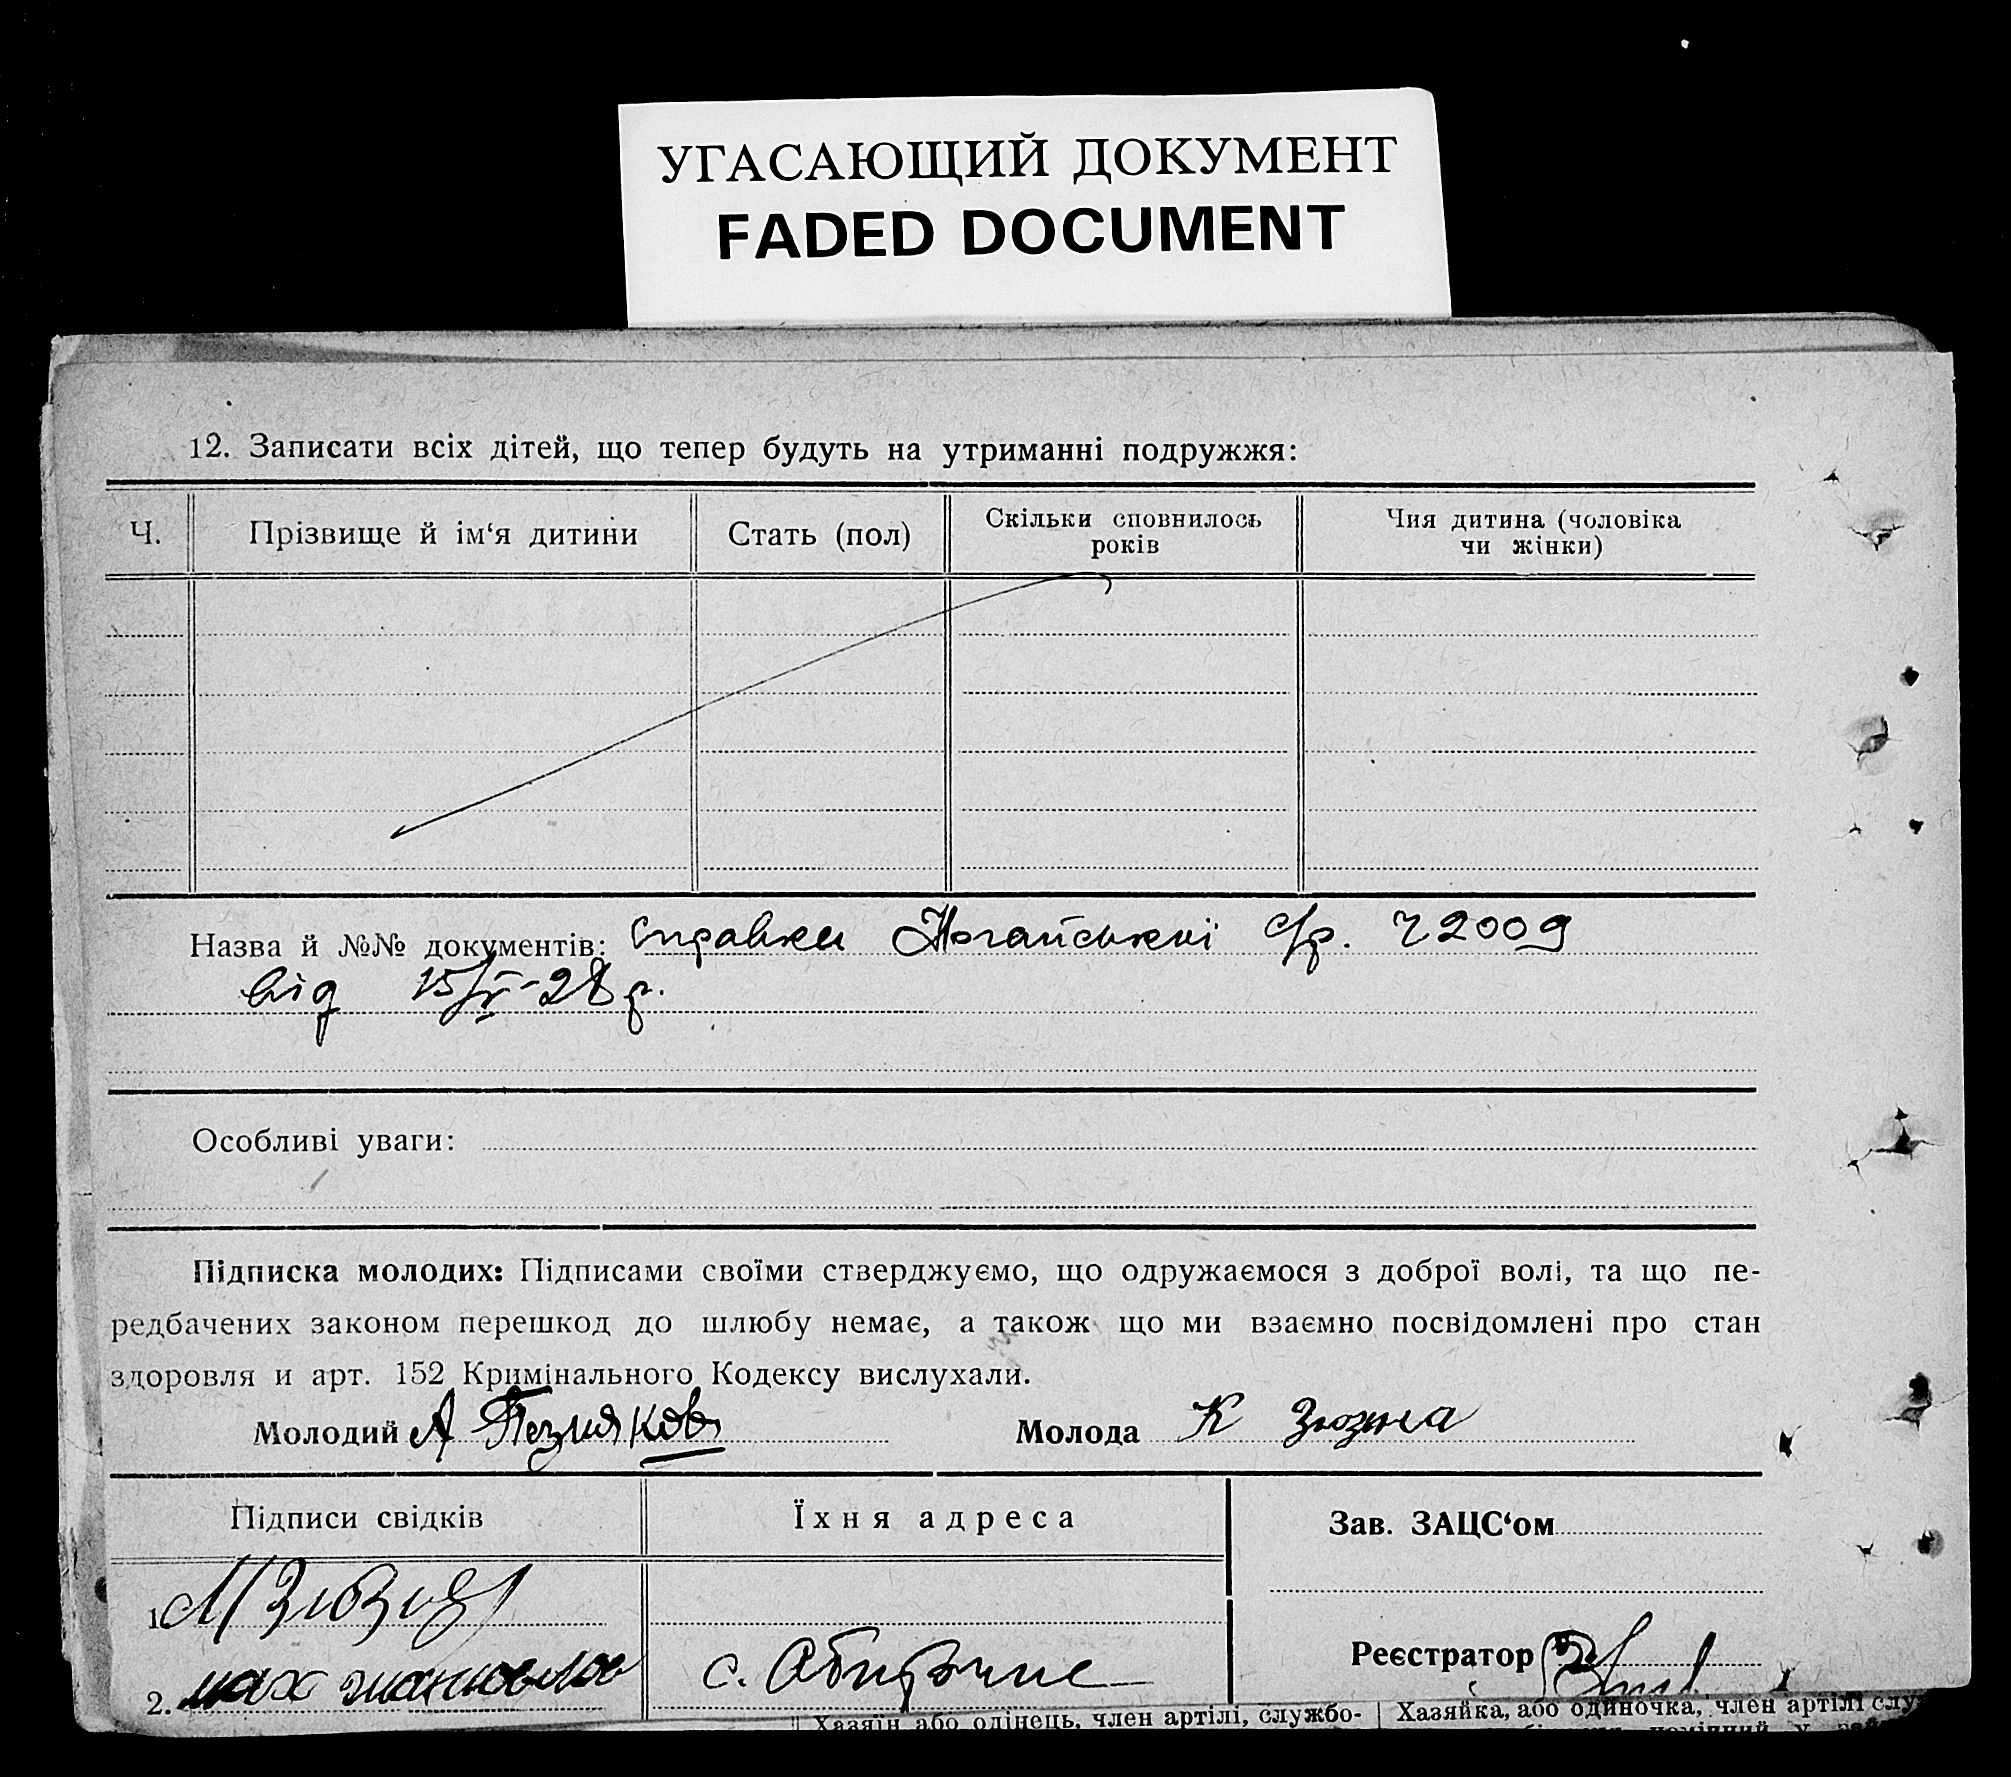 УГАСАЮЩИЙ ДОКУМЕНТ
FADED DOCUMENT
12. Записати всіх дітей, що тепер будуть на утриманні подружжя:
Ч.
Прізвище й ім‘я дитини
Стать (пол)
Скільки сповнилось
років
Чия дитина (чоловіка
чи жінки)
Назва й №№ документів: Справки Ногайської с/р. ч 2009
від 15/V-28 р.
Особливі уваги:
Підписка молодих: Підписами своїми стверджуємо, що одружаємося з доброї волі, та що пе-
редбачених законом перешкод до шлюбу немає, а також що ми взаємно посвідомлені про стан
здоровля и арт. 152 Кримінального Кодексу вислухали.
Молодий А
Молода К Зюзіна
Підписи свідків
Їхня адреса
Зав. ЗАЦС‘ом
1.
2.
с.
Реєстратор
Хазяїн або одінець, член артілі, службо-
Хазяйка, або одиночка, член артілі служ